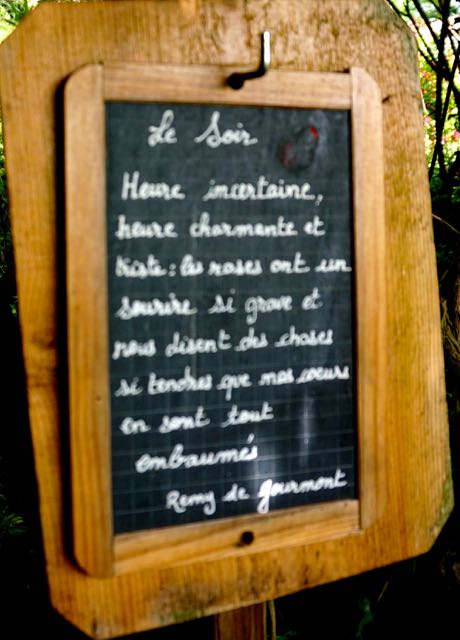 Le Soir
Heure incertaine,
heure charmante et
triste : les roses ont un
sourire si grave et
nous disent des choses
si tendres que nos coeurs
en sont tout
embaumés
Remy de gourmont